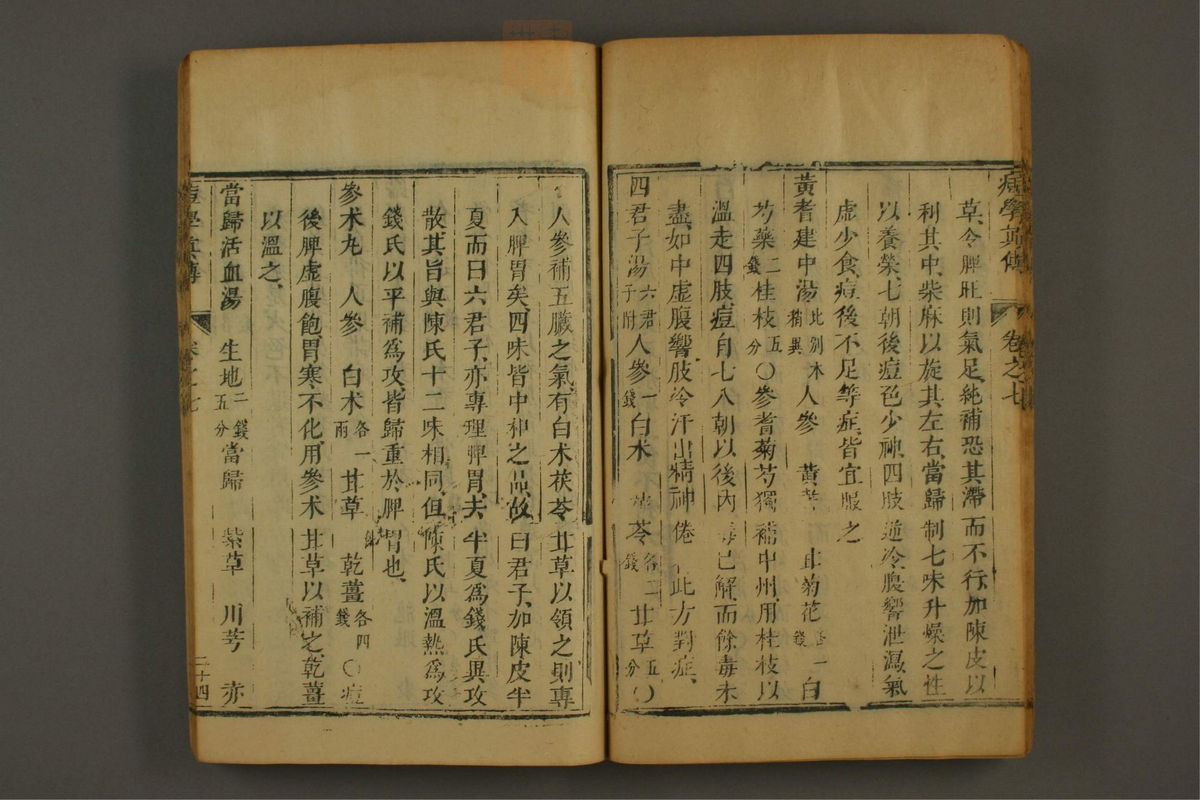 痘學真傳 卷之七
草令脾旺則氣足純補恐其滯而不行加陳皮以
利其中柴麻以旋其左右當歸制七味升燥之性
以養榮七朝後痘色少神四肢逆冷腹響泄瀉氣
虛少食痘後不足等症皆宜服之
黃耆建中湯此別木稍異人參 黃 甘菊花各一錢白
芍藥二錢桂枝五分〇參耆菊芍獨補中州用桂枝以
溫走四肢痘自七八朝以後內毒已解而餘毒未
盡如中虛腹響肢冷汗出精神倦此方對症
四君子湯六君子附人參一錢白朮 茯苓各二錢甘草五分〇
人參補五臟之氣有白朮茯苓甘草以領之則專
入脾胃矣四味皆中和之品故曰君子加陳皮半
夏而曰六君子亦專理脾胃夫半夏為錢氏異攻
散其旨與陳氏十二味相同但陳氏以溫熱為攻
錢氏以平補為攻皆歸重於脾胃也
參朮丸 人參 白朮各一兩甘草 乾薑各四錢〇痘
後脾虛腹飽胃寒不化用參朮甘草以補之乾薑
以溫之
當歸活血湯 生地二錢五分當歸 紫草 川芎 赤
痘學真傳 卷之七 二十四